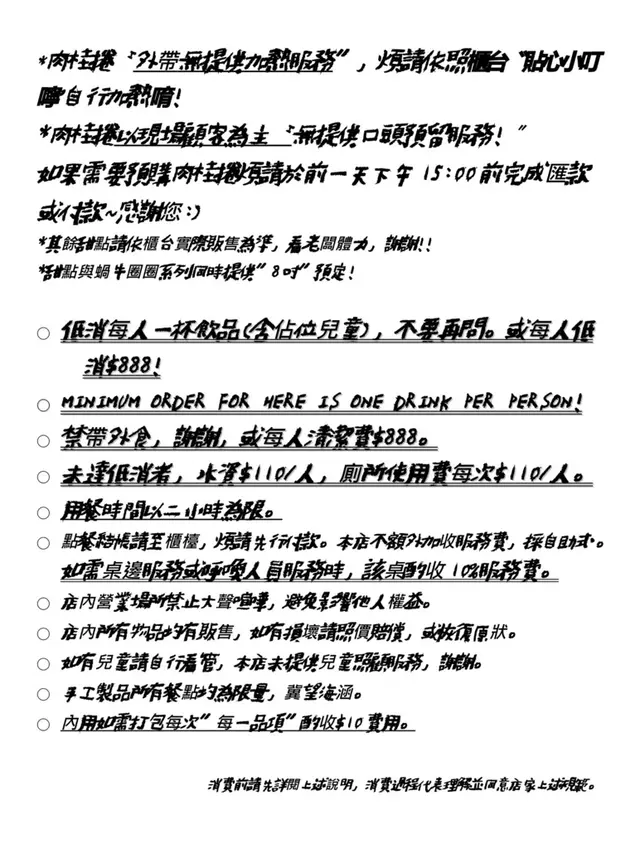 *肉桂捲“外帶無提供加熱服務”，煩請依照櫃台“貼心小叮
嚀自行加熱唷!
*肉桂捲以現場顧客為主“無提供口頭預留服務!”
如果需要預購肉桂捲煩請於前一天下午 15:00 前完成匯款
或付款~感謝您:)
*其餘甜點請依櫃台實際販售為準，看老闆體力，謝謝!!
*甜點與蝸牛圈圈系列同時提供”8吋”預定!
○ 低消每人一杯飲品(含佔位兒童)，不要再問。或每人低
消$888!
○ MINIMUM ORDER FOR HERE IS ONE DRINK PER PERSON!
○ 禁帶外食，謝謝，或每人清潔費$888。
○ 未達低消者，水資$110/人，廁所使用費每次$110/人。
○ 用餐時間以二小時為限。
○ 點餐結帳請至櫃檯，煩請先行付款。本店不額外加收服務費，採自助式。
如需桌邊服務或呼喚人員服務時，該桌酌收 10%服務費。
○ 店內營業場所禁止大聲喧嘩，避免影響他人權益。
○ 店內所有物品均有販售，如有損壞請照價賠償，或恢復原狀。
○ 如有兒童請自行看管，本店未提供兒童照顧服務，謝謝。
○ 手工製品所有餐點均為限量，冀望海涵。
○ 內用如需打包每次”每一品項”酌收$10 費用。
消費前請先詳閱上述說明，消費過程代表理解並同意店家上述規範。